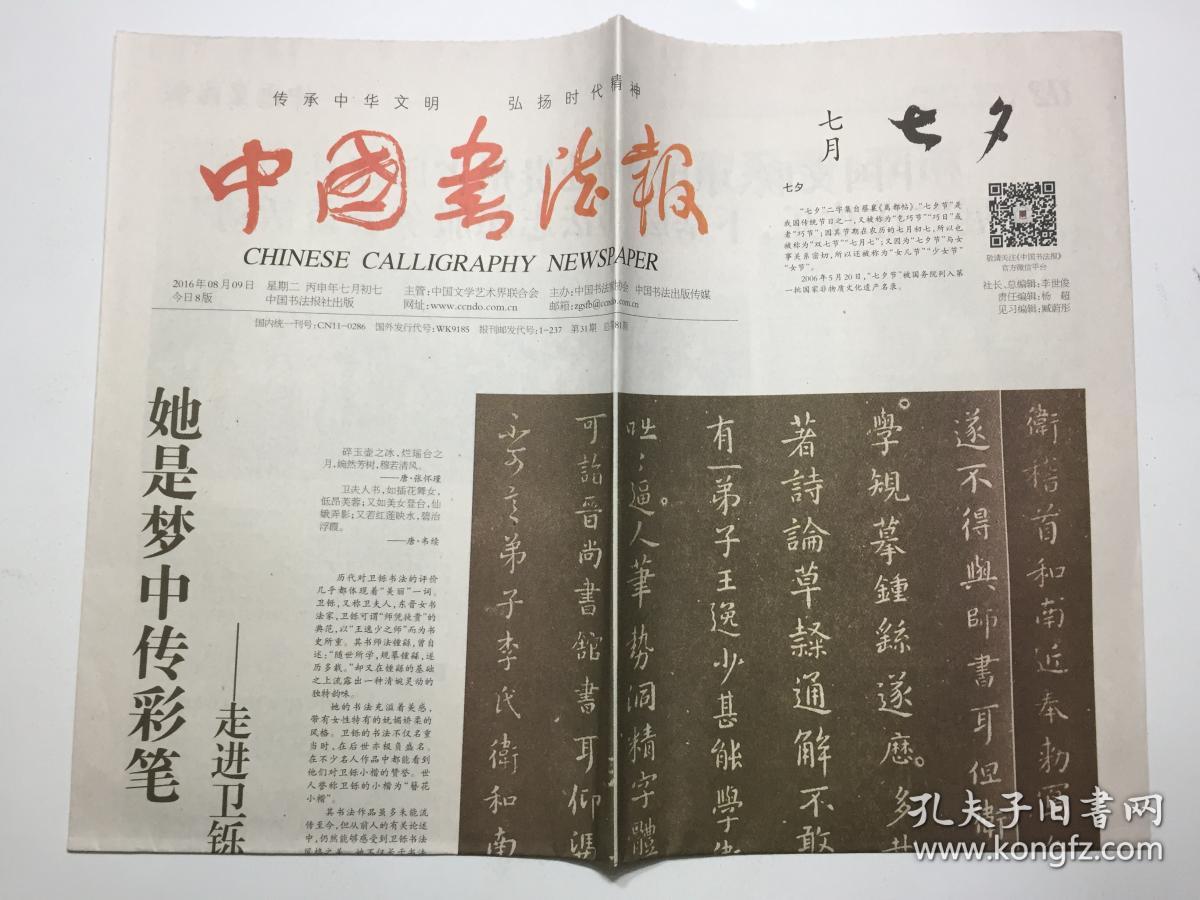 传承中华文明 弘扬时代精神
中國书法報
CHINESE CALLIGRAPHY NEWSPAPER
2016年08月09日 星期二 丙申年七月初七 主管:中国文学艺术界联合会 主办:中国书法家协会 中国书法出版传媒
今日8版 中国书法报社出版 网址:www.ccndo.com.cn 邮箱:zgsfb@ccndo.com.cn
国内统一刊号:CN11-0286 国外发行代号:WK9185 报刊邮发代号:1-237 第31期 总第81期
七月
七夕
七夕
“七夕”二字集自蔡襄《离都帖》。“七夕节”是
我国传统节日之一,又被称为“乞巧节”“巧日”或
者“巧节”;因其节期在农历的七月初七,所以也
被称为“双七节”“七月七”;又因为“七夕节”与女
事关系密切,所以还被称为“女儿节”“少女节”
“女节”。
2006年5月20日,“七夕节”被国务院列入第
一批国家非物质文化遗产名录。
敬请关注《中国书法报》
官方微信平台
社长、总编辑:李世俊
责任编辑:杨 超
见习编辑:臧蔚彤
她是梦中传彩笔
——走进卫铄
碎玉壶之冰,烂瑶台之
月,婉然芳树,穆若清风。
——唐·张怀瓘
卫夫人书,如插花舞女,
低昂芙蓉;又如美女登台,仙
娥弄影;又若红莲映水,碧治
浮霞。
——唐·韦续
历代对卫铄书法的评价
几乎都体现着“美丽”一词。
卫铄,又称卫夫人,东晋女书
法家,卫铄可谓“师凭徒贵”的
典范,以“王逸少之师”而为书
史所重。其书师法锺繇,曾自
述:“随世所学,规摹锺繇,遂
历多载。”却又在锺繇的基础
之上流露出一种清婉灵动的
独特韵味。
她的书法充溢着美感,
带有女性特有的妩媚娇柔的
风格。卫铄的书法不仅名重
当时,在后世亦极负盛名。
在不少名人作品中都能看到
他们对卫铄小楷的赞誉。世
人誉称卫铄的小楷为“簪花
小楷”。
其书法作品虽多未能流
传至今,但从前人的有关论述
中,仍然能够感受到卫铄书法
衛稽首和南近奉勅寫
遂不得與師書耳但衛
學規摹鍾繇遂歷多
著詩論草隸通解不敢
有一弟子王逸少甚能學
咄咄逼人筆勢洞精字體
可詣晉尚書館書耳仰憑
弟子李氏衛和南
孔夫子旧书网
www.kongfz.com